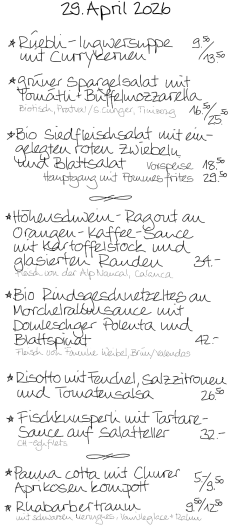 29. April 2026
* Rüebli-Ingwersuppe 9.50/
mit Currykernen 13.50
* grüner Spargelsalat mit
Tomätli + Büffelmozzarella
16.50/25.50
* Bio Siedfleischsalat mit ein-
gelegten roten Zwiebeln
und Blattsalat Vorspeise 18.50
Hauptgang mit Pommes frites 29.50
* Höhenschwein-Ragout an
Orangen-Kaffee-Sauce
mit Kartoffelstock und
glasierten Randen 34.-
Fleisch von der Alp
* Bio Rindsgeschnetzeltes an
Morchelrahmsauce mit
Domleschger Polenta und
Blattspinat 42.-
Fleisch von Familie
* Risotto mit Fenchel, Salzzitronen
und Tomatensalsa 26.50
* Fischknusperli mit Tartare-
Sauce auf Salatteller 32.-
CH-Eglifilets
* Panna cotta mit Churer
Aprikosenkompott 5/9.50
* Rhabarbertraum 9.50/12.50
mit schwarzen Meringues, Vanilleglace + Rahm